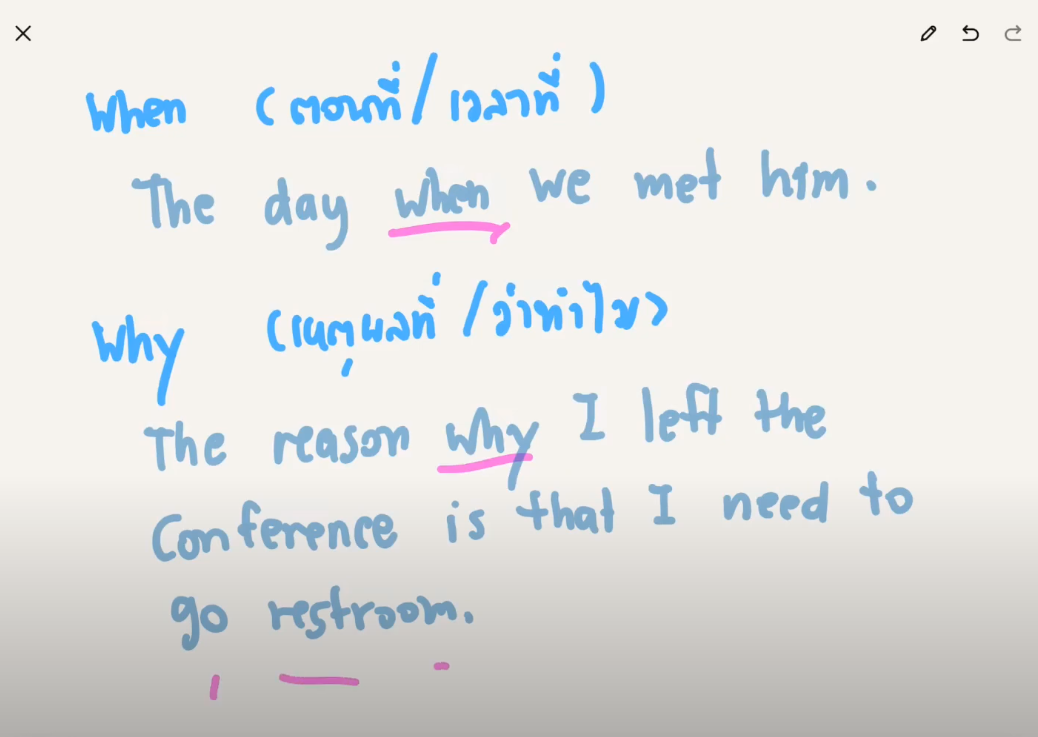 When (ตอนที่/เวลาที่)
The day when we met him.
Why (เหตุผลที่/ว่าทำไม)
The reason why I left the
Conference is that I need to
go restroom.